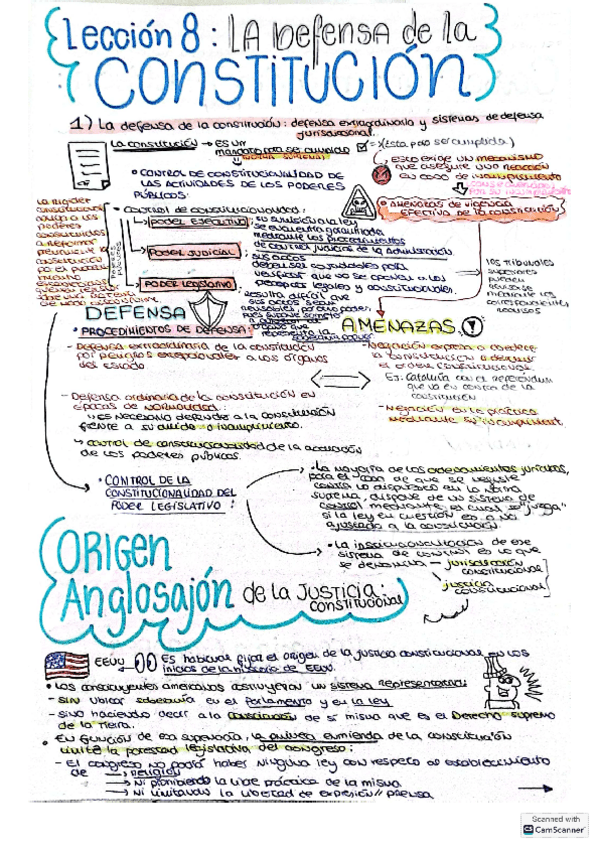 Lección 8: LA Defensa de la
CONSTITUCIÓN
1) La defensa de la constitución: defensa extraordinaria y sistemas de defensa
jurisdiccional.
La constitución → es un
mandato para ser cumplido
= (está para ser cumplida)
norma suprema
esto exige un mecanismo
que asegure una reacción
en caso de incumplimiento
• CONTROL DE CONSTITUCIONALIDAD DE
LAS ACTIVIDADES DE LOS PODERES
PÚBLICOS:
• AMENAZAS DE VIGENCIA
EFECTIVA DE LA CONSTITUCIÓN
• Control de constitucionalidad:
PODER EJECUTIVO: su sumisión a la ley
se encuentra garantizada
mediante los procedimientos
de control judicial de la administración.
PODER JUDICIAL: sus actos
verificar que no son contrarios a los
preceptos legales y constitucionales.
los tribunales
superiores
pueden
mediante los
correspondientes
recursos
PODER LEGISLATIVO: resulta difícil que
sus actos sean
DEFENSA
AMENAZAS
• PROCEDIMIENTOS DE DEFENSA:
- Defensa extraordinaria de la constitución
por peligros excepcionales a los órganos
del estado
- Negación expresa a obedecer
la constitución o destruir
el orden constitucional.
Ej: Cataluña con el referéndum
que va en contra de la
constitución
- Defensa ordinaria de la constitución en
épocas de normalidad:
es necesario defender a la constitución
frente a su olvido o incumplimiento.
- Negación en la práctica
mediante su incumplimiento
→ control de constitucionalidad de la actuación
de los poderes públicos.
• CONTROL DE LA
CONSTITUCIONALIDAD DEL
PODER LEGISLATIVO:
• La mayoría de los ordenamientos jurídicos,
para el caso de que se vulnere
contra lo dispuesto en la norma
suprema, dispone de un sistema de
control mediante el cual se "juzga"
si la ley en cuestión es o no
ajustado a la constitución.
• La institucionalización de ese
sistema de control es lo que
se denomina — jurisdicción
constitucional
justicia
constitucional
ORIGEN
Anglosajón de la JUSTICIA
CONSTITUCIONAL
EEUU
Es habitual fijar el origen de la justicia constitucional en los
inicios de la historia de EEUU.
• Los constituyentes americanos construyeron un sistema representativo:
- SIN ubicar soberanía en el Parlamento y en la ley
- sino haciendo decir a la constitución de sí misma que es el Derecho supremo
de la tierra.
• En función de esa supremacía, la primera enmienda de la constitución
limita la potestad legislativa del congreso:
- El congreso no podrá haber ninguna ley con respeto al establecimiento
de → religión
→ Ni prohibiendo la libre práctica de la misma
→ Ni limitando la libertad de expresión // prensa
Scanned with
CamScanner